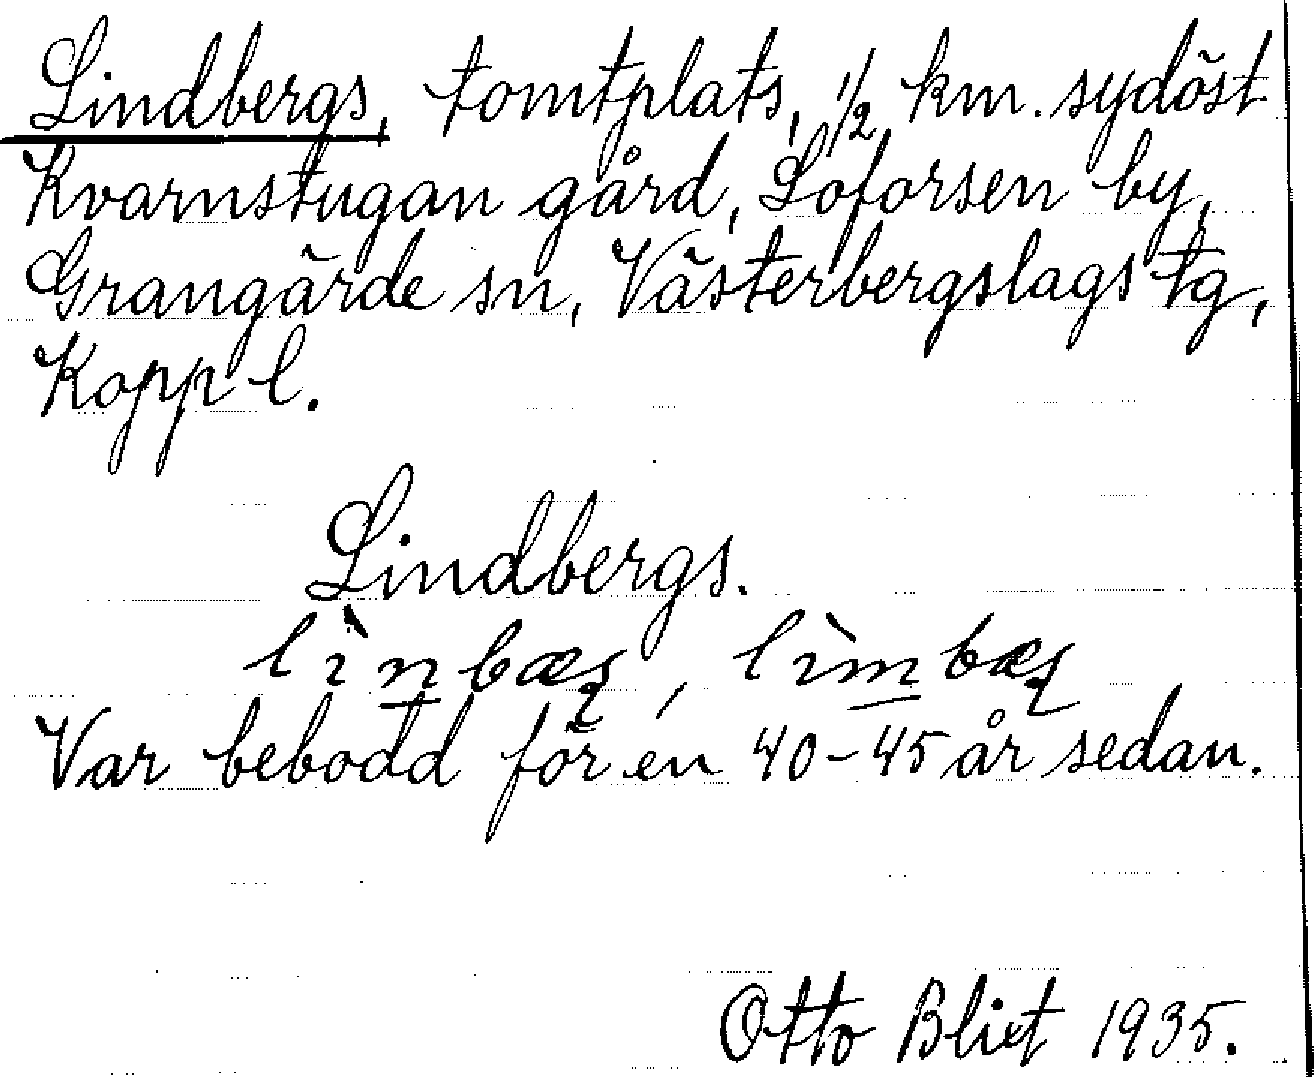 Lindbergs, tomtplats, 1/2 km. sydöst
Kvarnstugan gård, Loforsen by,
Grangärde sn, Västerbergslags tg,
Kopp l.
Lindbergs.
Var bebodd för en 40-45 år sedan.
Otto Blixt 1935.